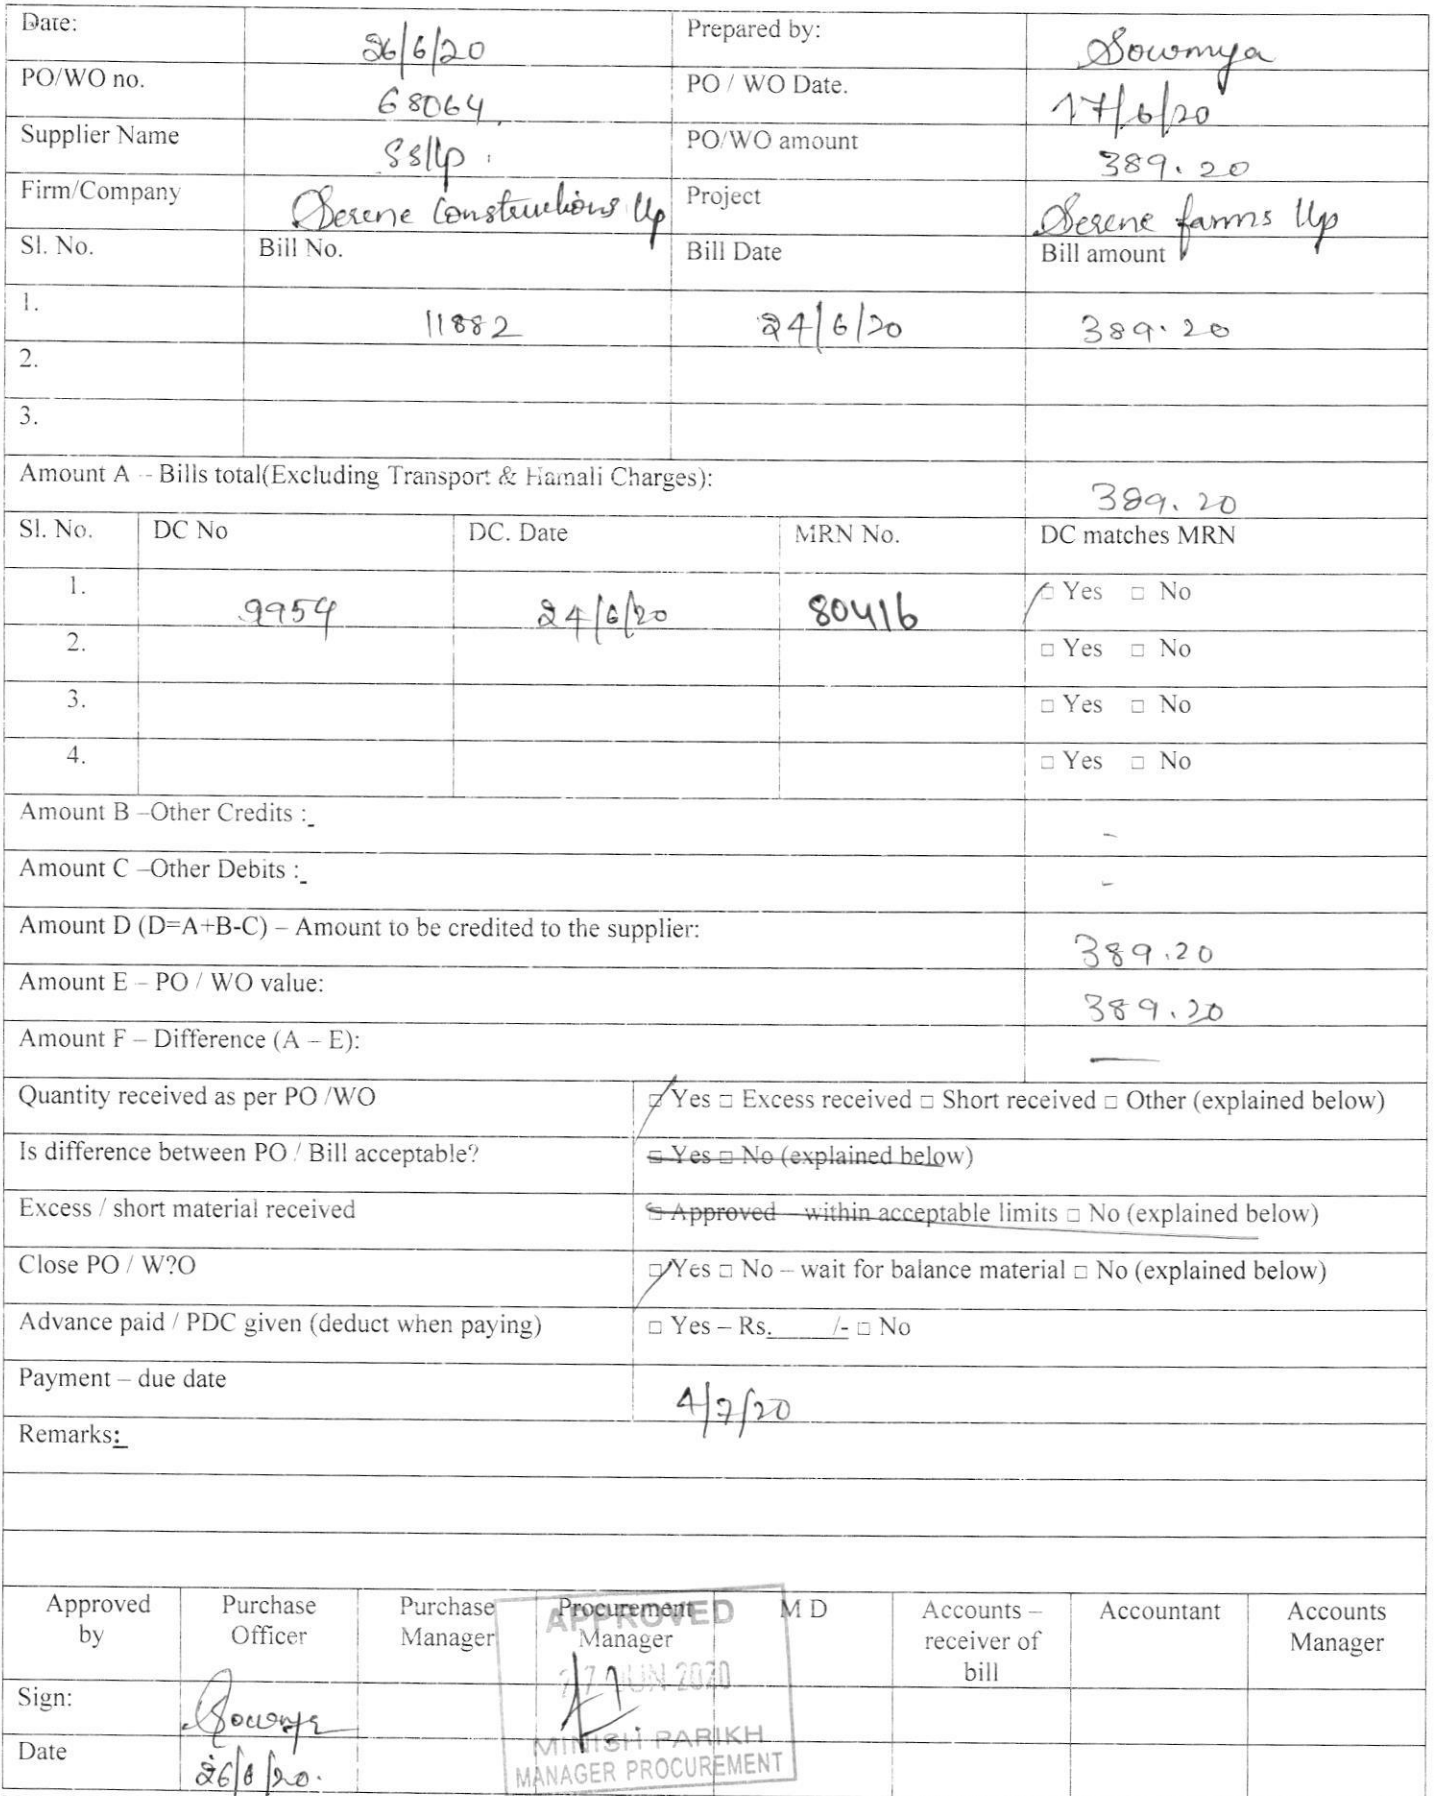 Date: 26/6/20 Prepared by: Sowmya
PO/WO no. 68064 PO / WO Date. 17/6/20
Supplier Name SSllp PO/WO amount 389.20
Firm/Company Serene Constructions llp Project Serene farms llp
Sl. No. Bill No. Bill Date Bill amount
1. 11882 24/6/20 389.20
2.
3.
Amount A – Bills total(Excluding Transport & Hamali Charges): 389.20
Sl. No. DC No DC. Date MRN No. DC matches MRN
1. 9954 24/6/20 80416 □ Yes □ No
2. □ Yes □ No
3. □ Yes □ No
4. □ Yes □ No
Amount B –Other Credits : -
Amount C –Other Debits : -
Amount D (D=A+B-C) – Amount to be credited to the supplier: 389.20
Amount E – PO / WO value: 389.20
Amount F – Difference (A – E): —
Quantity received as per PO /WO □ Yes □ Excess received □ Short received □ Other (explained below)
Is difference between PO / Bill acceptable? □ Yes □ No (explained below)
Excess / short material received □ Approved – within acceptable limits □ No (explained below)
Close PO / W?O □ Yes □ No – wait for balance material □ No (explained below)
Advance paid / PDC given (deduct when paying) □ Yes – Rs.____/- □ No
Payment – due date 4/7/20
Remarks:
Approved by Purchase Officer Purchase Manager Procurement Manager M D Accounts – receiver of bill Accountant Accounts Manager
APPROVED
27 JUN 2020
Sign: Sowmya
MINISH PARIKH
MANAGER PROCUREMENT
Date 26/6/20.